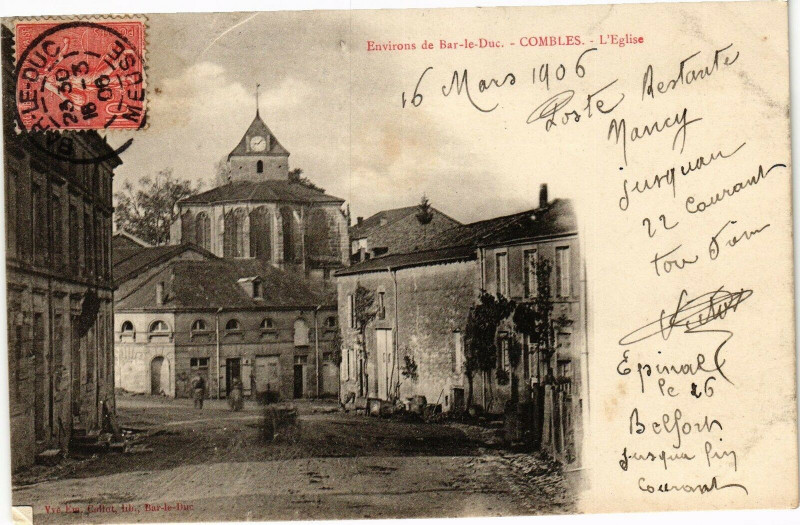 Environs de Bar-le-Duc. - COMBLES. - L'Eglise
16 Mars 1906
Poste Restante
Nancy
jusquau
22 Courant
ton
Victor
Epinal
le 26
Belfort
Jusqua fin
Courant
BAR-LE-DUC
MEUSE
10
Vve. Em. Collot, lib., Bar-le-Duc